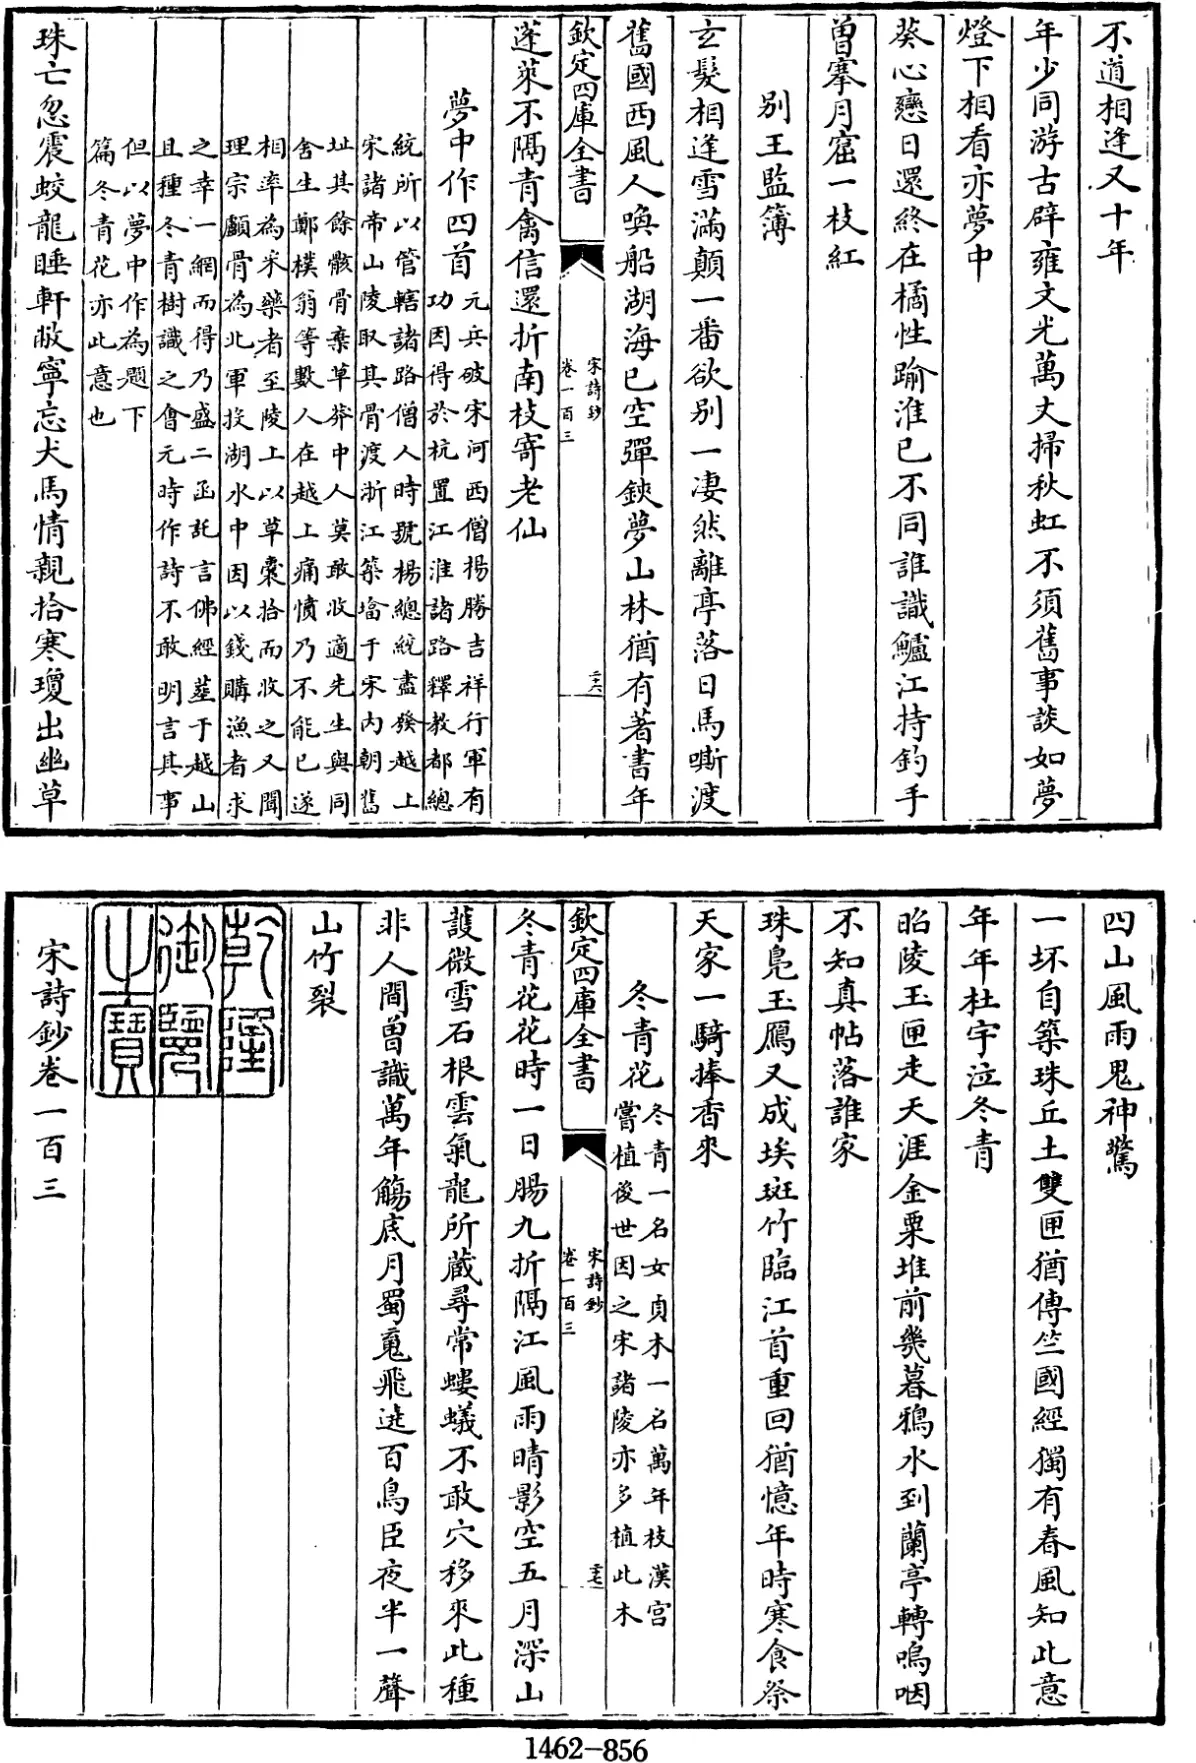 不道相逢又十年
年少同游古辟雍文光萬丈掃秋虹不須舊事談如夢
燈下相看亦夢中
葵心戀日還終在橘性踰淮已不同誰識鱸江持釣手
曾搴月窟一枝紅
别王監簿
玄髮相逢雪滿顛一番欲别一凄然離亭落日馬嘶渡
舊國西風人喚船湖海已空彈鋏夢山林猶有著書年
欽定四庫全書
宋詩鈔
卷一百三
二六
蓬萊不隔青禽信還折南枝寄老仙
夢中作四首
元兵破宋河西僧楊勝吉祥行軍有
功因得於杭置江淮諸路釋教都總
統所以管轄諸路僧人時號楊總統盡發越上
宋諸帝山陵取其骨渡浙江築塔于宋内朝舊
址其餘骸骨棄草莽中人莫敢收適先生與同
舍生鄭樸翁等數人在越上痛憤乃不能已遂
相率為采藥者至陵上以草囊拾而收之又聞
理宗顱骨為北軍投湖水中因以錢購漁者求
之幸一網而得乃盛二函託言佛經塟于越山
且種冬青樹識之會元時作詩不敢明言其事
但以夢中作為題下
篇冬青花亦此意也
珠亡忽震蛟龍睡軒敝寧忘犬馬情親拾寒瓊出幽草
四山風雨鬼神驚
一坏自築珠丘土雙匣猶傳竺國經獨有春風知此意
年年杜宇泣冬青
昭陵玉匣走天涯金粟堆前幾暮鴉水到蘭亭轉嗚咽
不知真帖落誰家
珠鳬玉鴈又成埃斑竹臨江首重回猶憶年時寒食祭
天家一騎捧香來
冬青花
冬青一名女貞木一名萬年枝漢宫
嘗植後世因之宋諸陵亦多植此木
欽定四庫全書
宋詩鈔
卷一百三
二七
冬青花花時一日腸九折隔江風雨晴影空五月深山
護微雪石根雲氣龍所藏尋常螻蟻不敢穴移來此種
非人間曾識萬年觴底月蜀䰟飛遶百鳥臣夜半一聲
山竹裂
乾隆
御覽
之寶
宋詩鈔卷一百三
1462-856